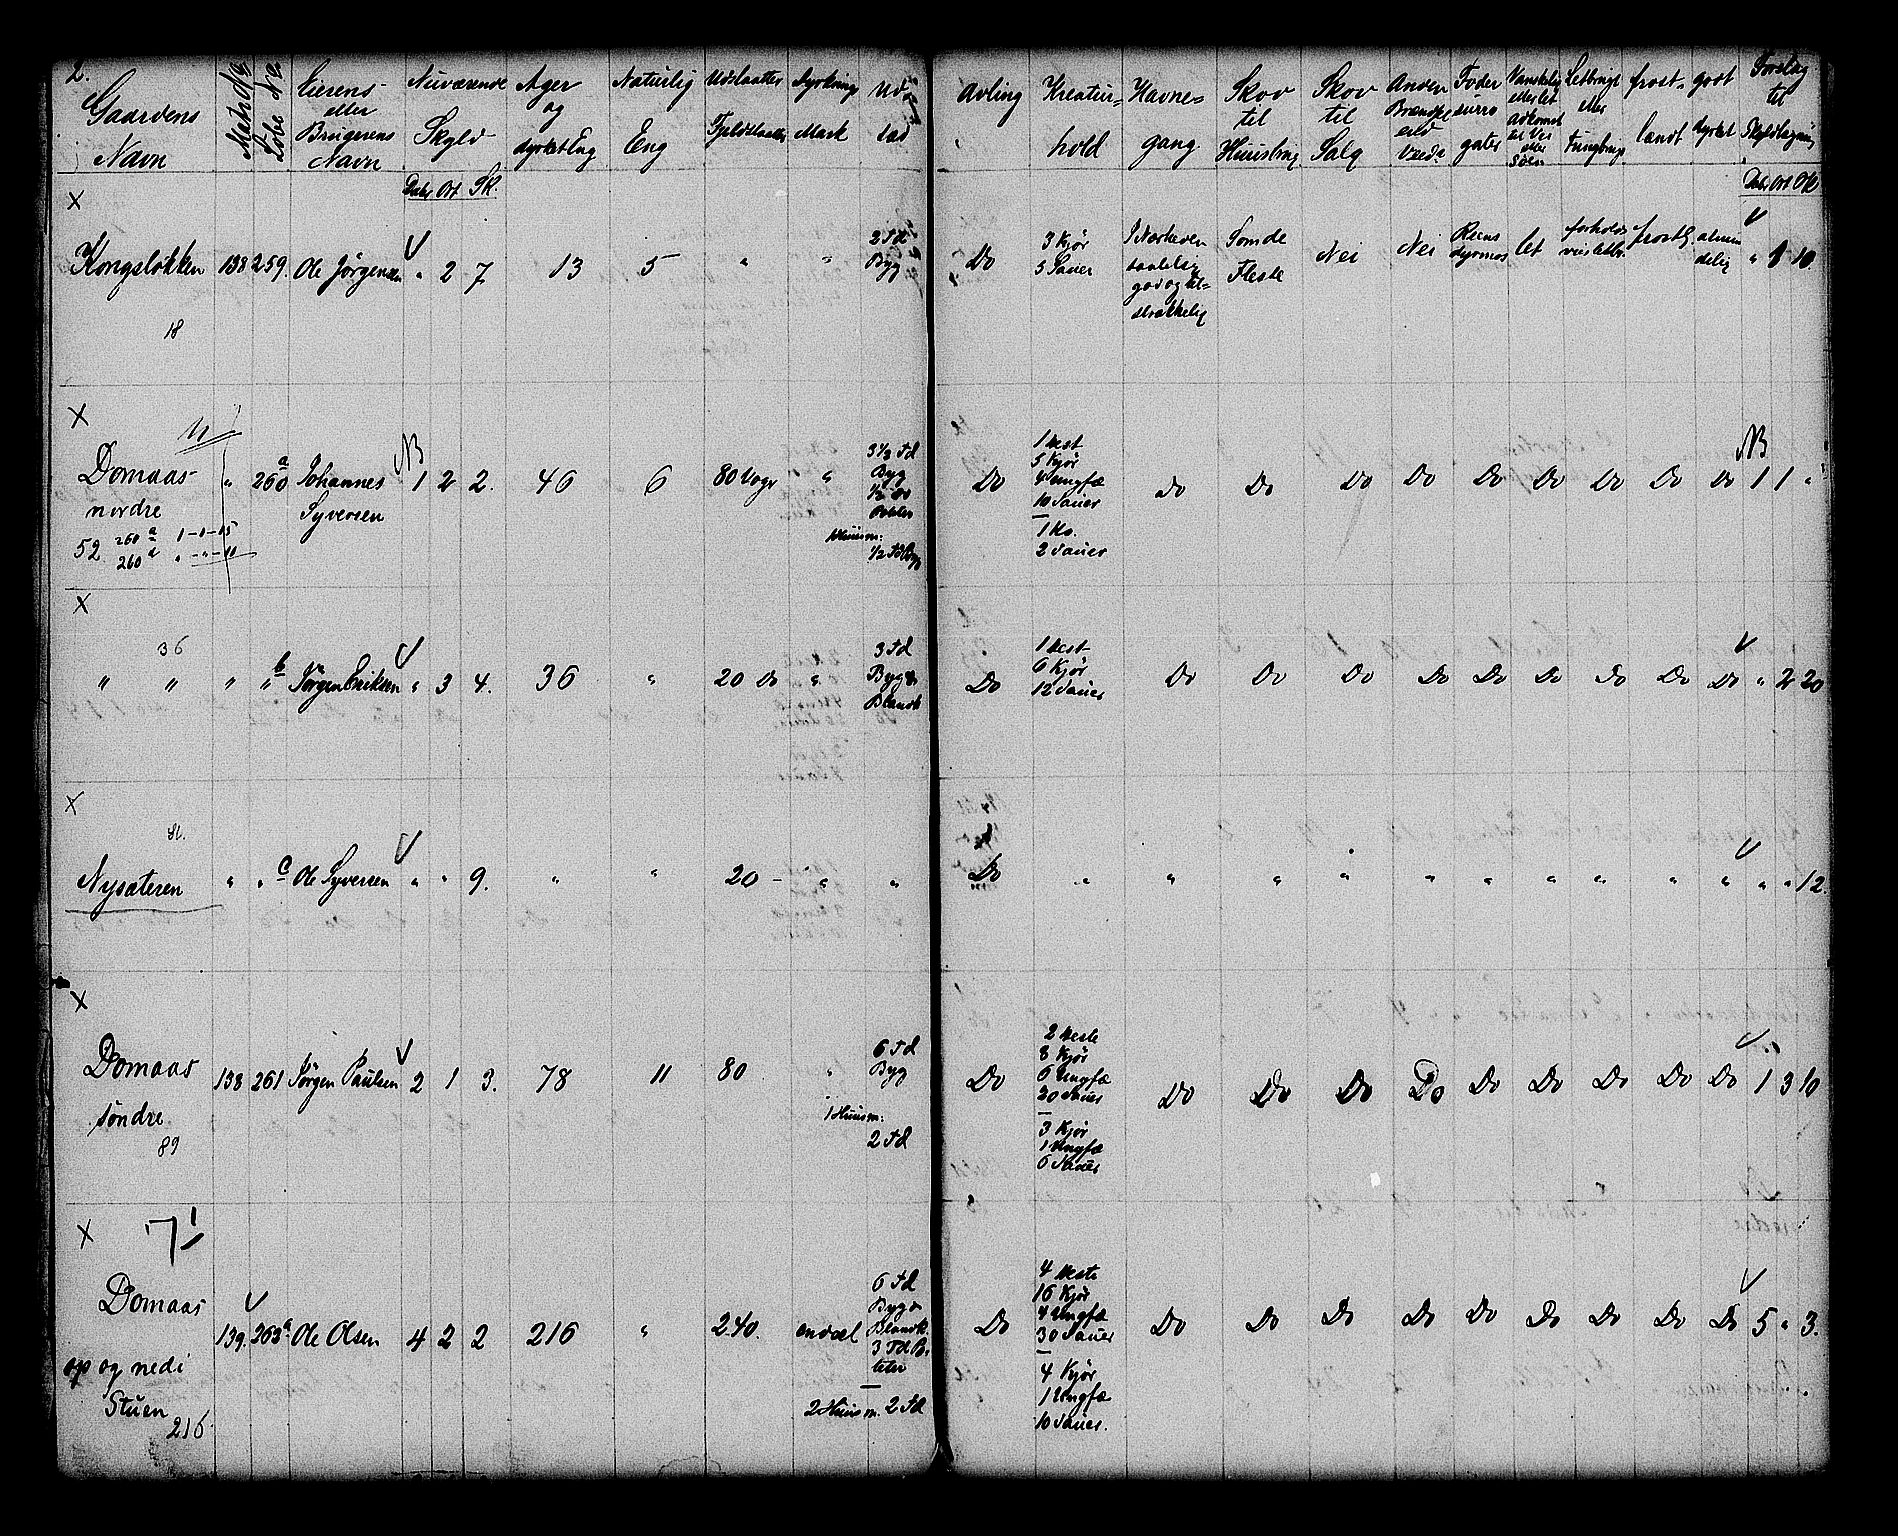 2.
Gaardens Navn | Matr No | Løbe No | Eierens eller Brugerens Navn | Nuværende Skyld | Ager og dyrket Eng | Naturlig Eng | Udslaatter Fjeldslaatter | Dyrknings Mark | Ud sæd | Avling | Kreatur- hold | Havne- gang | Skov til Huusbrug | Skov til Salg | Anden Brændsel Ved | Foder surro gater | Vanskelig eller let adkomst til Vei eller Søen | Letbrugt eller Tungbrugt | frost- lændt | godt dyrket | Forslag til Skyldlægning
Daler Ort Sk. | Daler Ort Sk
X
Kongsløkken | 138 | 259. | Ole Jörgensen | " 2 7 | 13 | 5 | " | " | 2 Td Byg | Do | 3 Kjör 5 Sauer | I Nærheden taalelig god og til= strækkelig | Som de Fleste | Nei | Nei | Reens dyrmos | let | forholds vis letbr. | frostl. | almin delig | " 1 10.
18
X
11
Domaas nordre | " | 260 a | Johannes Syversen | NB 1 2 2. | 46 | 6 | 80 Voger | " | 3 1/2 Td Byg 1/2 do Poteter | Do | 1 Hest 5 Kjör 4 Ungfæ 10 Sauer | Do | Do | Do | Do | Do | Do | Do | Do | Do | NB 1 1 "
1 Huusm: 1/2 Td Byg | 1 Ko. 2 Sauer
52 260 a 1-0-15
260 d " - " - 10
X
36
" " | " | " b | Jörgen Eriksen | " 3 4. | 36 | " | 20 do | " | 3 Td Byg & Blandk | Do | 1 Hest 6 Kjör 12 Sauer | Do | Do | Do | Do | Do | Do | Do | Do | Do | " 2 20
X
81.
Nysæteren | " | " c | Ole Syversen | " " 9. | " | " | 20 - | " | " | Do | " | " | " | " | " | " | " | " | " | " | " " 12.
X
Domaas söndre | 138 | 261 | Jörgen Paulsen | 2 1 3. | 78 | 11 | 80 | " | 6 Td Byg | Do | 2 Heste 8 Kjör 6 Ungfæ 20 Sauer | Do | Do | Do | Do | Do | Do | Do | Do | Do | 1 3 10
1 Huusm: 2 Td | 3 Kjör 1 Ungfæ 6 Sauer
89
X
71
Domaas op og nedi Stuen | 139. | 263 a | Ole Olsen | 4 2 2 | 216 | " | 240. | en deel | 6 Td Byg & Blandk. 3 Td Po- teter | Do | 4 Heste 16 Kjör 4 Ungfæ 30 Sauer | Do | Do | Do | Do | Do | Do | Do | Do | Do | 5 " 3.
2 Huusm. 2 Td | 4 Kjör 1 Ungfæ 10 Sauer.
216